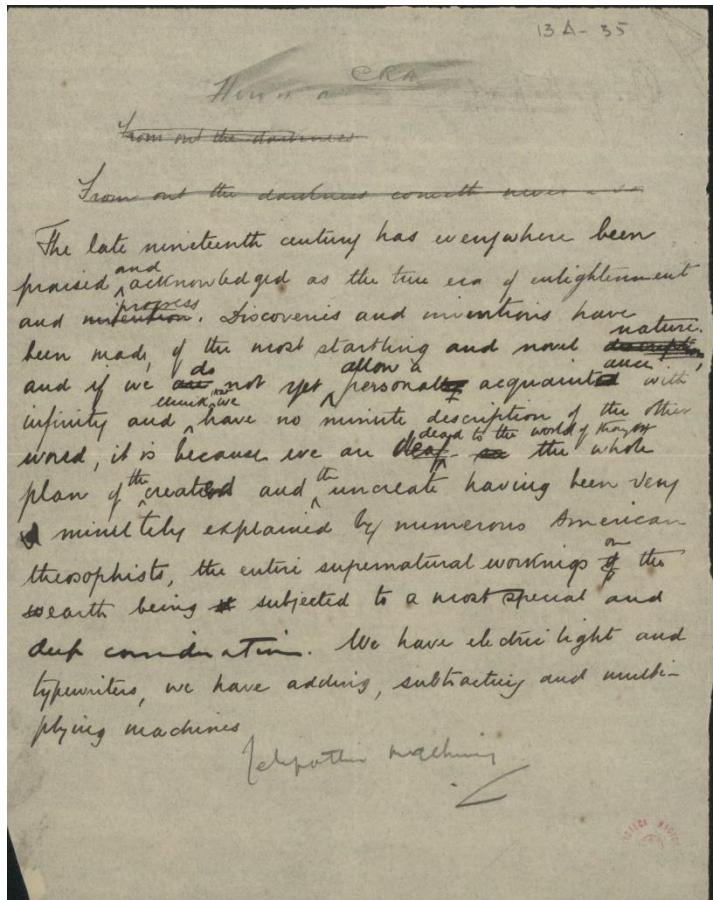 13A-35
CRA
From out the darkness
From out the darkness cometh never a
The late nineteenth century has everywhere been
praised and acknowledged as the true era of enlightenment
and invention progress. Discoveries and inventions have
been made, of the most startling and novel description, nature.
and if we are do not yet allow a personally acquainted ance with
infinity and think we have no minute description of the other
world, it is because we are deaf dead to the world of thought the whole
plan of the created and the uncreate having been very
minutely explained by numerous American
theosophists, the entire supernatural workings of on the
earth being subjected to a most special and
deep consideration. We have electric light and
typewriters, we have adding, subtracting and multi-
plying machines
telepathic machines